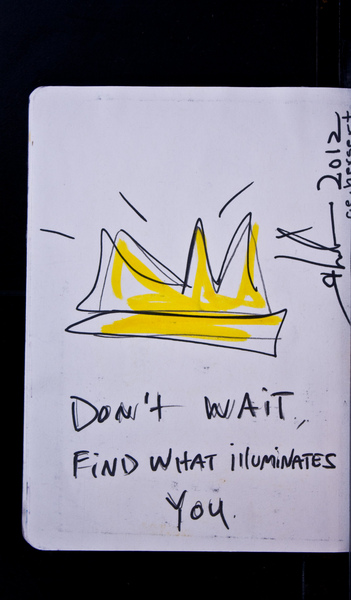 DON'T WAIT,
FIND WHAT illUMINATES
YOU.
2012